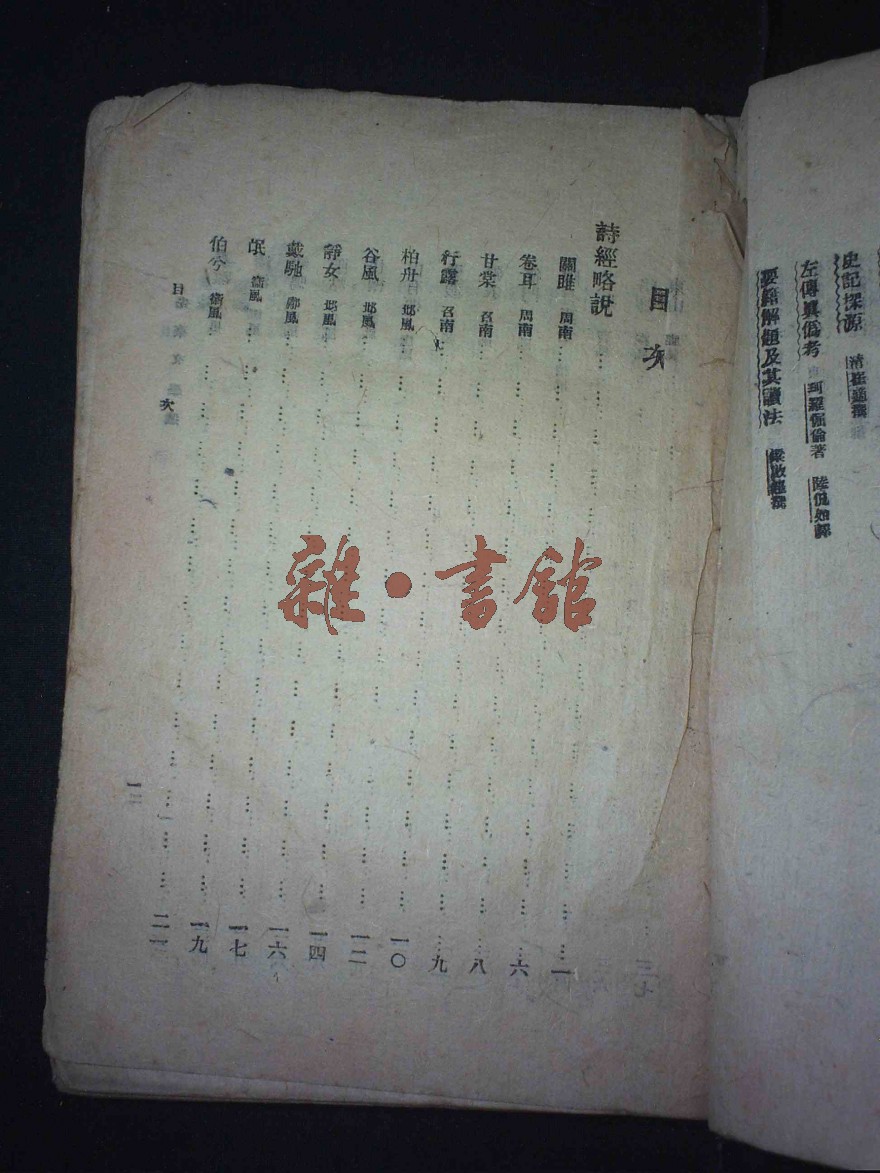 史記探源 清崔適撰
左傳眞僞考 珂羅倔倫著 陸侃如譯
要籍解題及其讀法 梁啟超撰
目次
詩經略說……一
關雎 周南……六
卷耳 周南……八
甘棠 召南……九
行露 召南……一〇
柏舟 邶風……一二
谷風 邶風……一四
靜女 邶風……一六
載馳 鄘風……一七
氓 衞風……一九
伯兮 衞風……二一
目 次
雜·書館